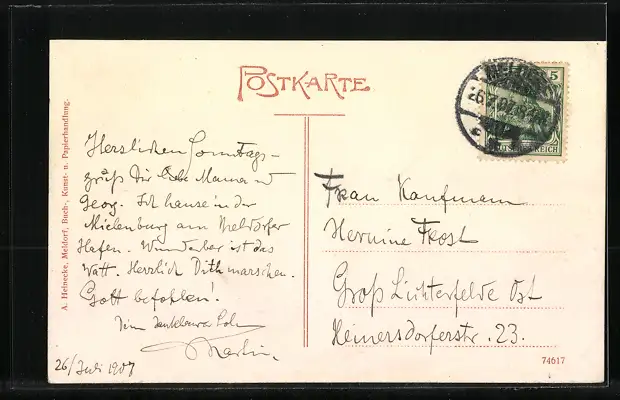 POSTKARTE
Herzlichen Sonntags-
gruß Dir liebe Mama u
Georg. Ich hause in der
Mielenburg am Meldorfer
Hafen. Wunderbar ist das
Watt. Herzlich Dithmarschen.
Gott befohlen!
Dein dankbarer Sohn
Martin.
26/Juli 1907
A. Heinecke, Meldorf, Buch-, Kunst- u. Papierhandlung.
5
DEUTSCHES REICH
Frau Kaufmann
Hermine Frost
Groß Lichterfelde Ost
Heinersdorferstr. 23.
74617